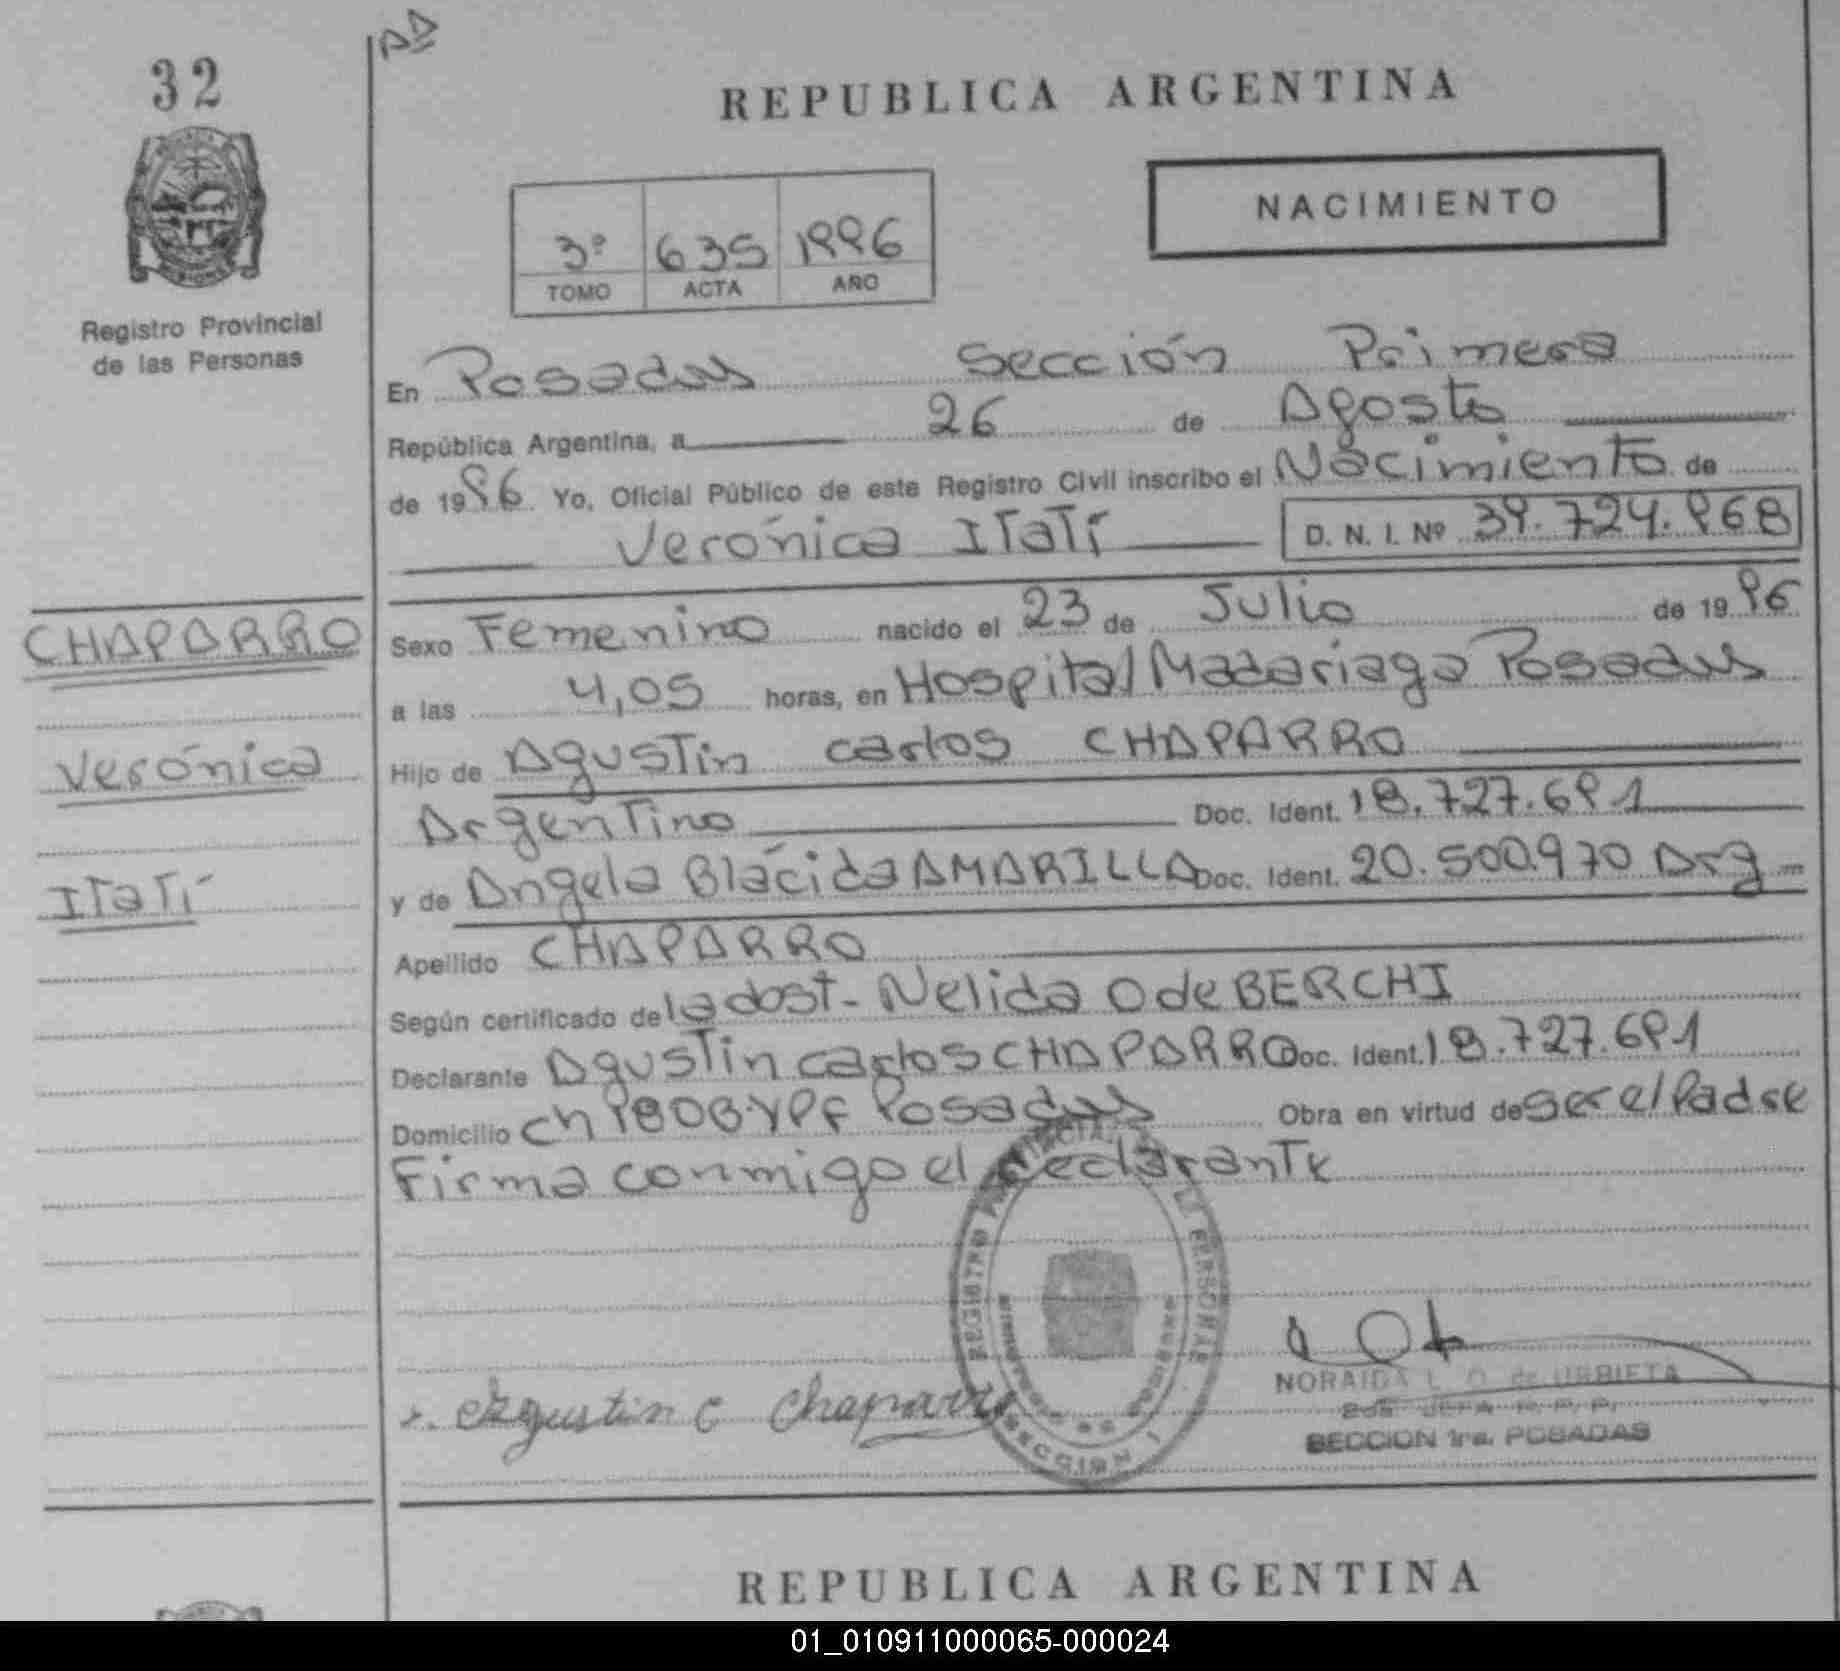 32
REPUBLICA ARGENTINA
NACIMIENTO
3º 635 1996
TOMO ACTA AÑO
Registro Provincial
de las Personas
En Posadas Sección Primera
República Argentina, a 26 de Agosto
de 1996. Yo, Oficial Público de este Registro Civil inscribo el Nacimiento de
Verónica ITaTí D. N. I. Nº 39.724.968
CHAPARRO
Verónica
ITaTí
Sexo Femenino nacido el 23 de Julio de 1996
a las 4,05 horas, en Hospital Madariaga Posadas
Hijo de Agustin Carlos CHAPARRO
Argentino Doc. Ident. 18.727.691
y de Angela Blácida AMARILLA Doc. Ident. 20.500.970 Arg
Apellido CHAPARRO
Según certificado de la obst- Nelida O de BERCHI
Declarante Agustin Carlos CHAPARRO Doc. Ident. 18.727.691
Domicilio Posadas Obra en virtud de ser el Padre
Firma conmigo el declarante
Agustin C Chaparro
REGISTRO PERSONAS
SECCION 1
NORAIDA L. O. de URBIETA
2da. JEFA R. P. P.
SECCION 1ra. POSADAS
REPUBLICA ARGENTINA
01_010911000065-000024